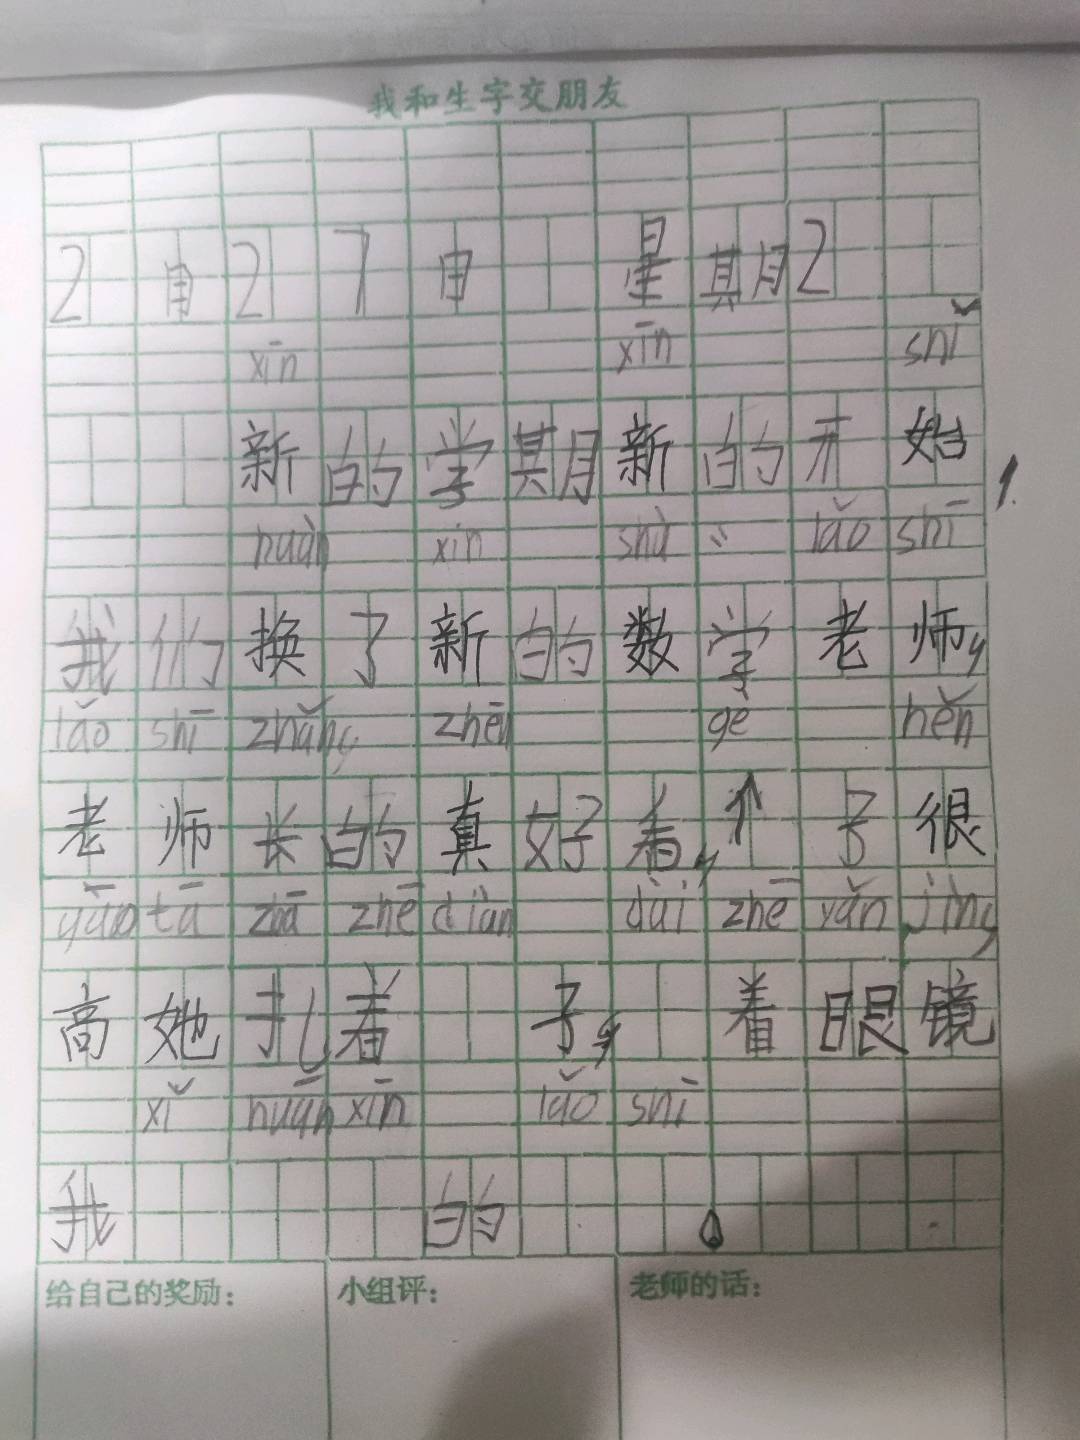 我和生字交朋友
2月27日 星期2
xīn xīn shǐ
新的学期新的开始
huàn xīn shù lǎo shī
我们换了新的数学老师,
lǎo shī zhǎng zhēn gè hěn
老师长的真好看,个子很
gāo tā zhā zhē biàn dài zhē yǎn jìng
高她扎着 子, 着眼镜
xǐ huān xīn lǎo shī
我 的 。
给自己的奖励: 小组评: 老师的话: